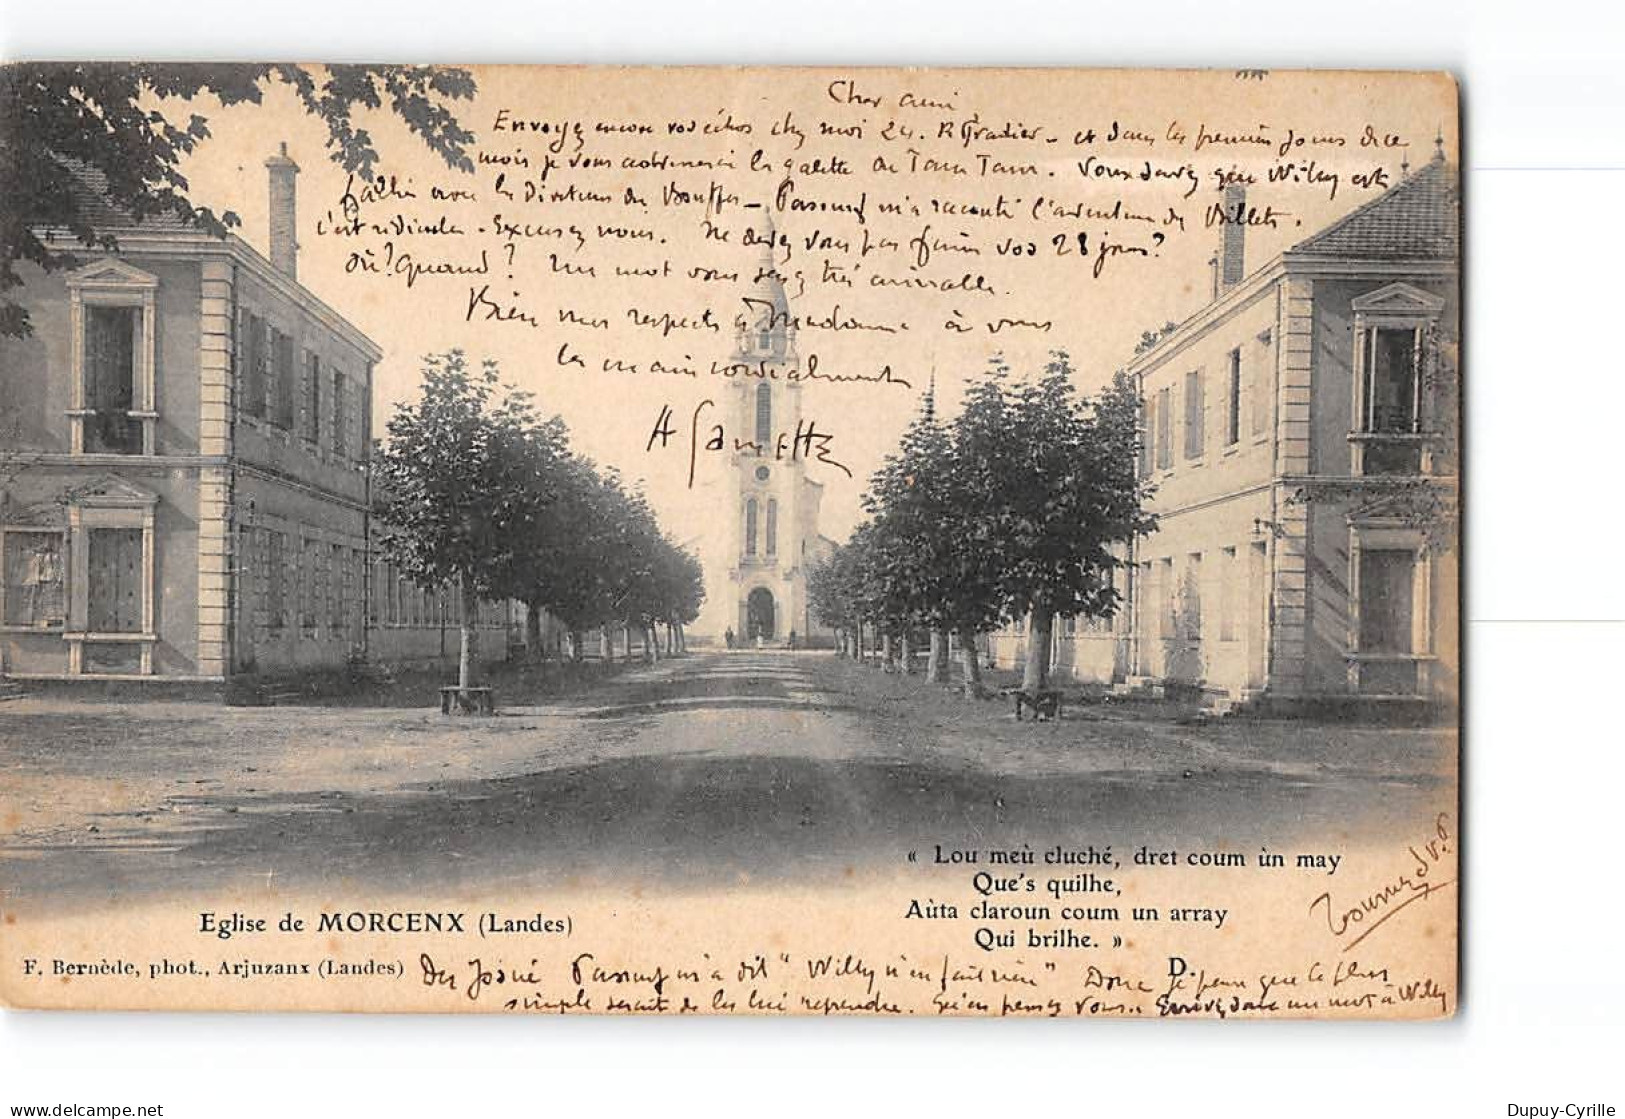 Cher ami
Envoyez encore vos échos chez moi 24. R Pradier - et dans les premiers jours de ce
mois je vous adresserai la galette du Tam Tam. Vous savez que Willy est
fâché avec le directeur des Bouffes - m'a raconté l'aventure des Billets.
c'est ridicule. Excusez nous. Ne devez vous pas faire vos 28 jours?
Où? Quand? Un mot vous serez très aimable.
Bien mes respects à Madame à vous
la main cordialement
H
« Lou meù cluché, dret coum ùn may
Que's quilhe,
Aùta claroun coum un array
Qui brilhe. »
D.
Tournez s.v.p.
Eglise de MORCENX (Landes)
F. Bernède, phot., Arjuzanx (Landes)
Des Josué m'a dit " Willy n'en fait rien " Donc je pense que le plus
simple serait de les lui reprendre. Qu'en pensez vous.. Ecrivez donc un mot à Willy
Dupuy-Cyrille
www.delcampe.net